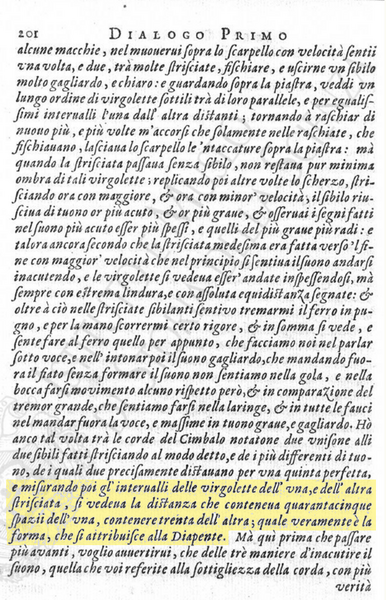 201 DIALOGO PRIMO
alcune macchie, nel muouerui sopra lo scarpello con velocità sentij
vna volta, e due, trà molte strisciate, fischiare, e vscirne vn sibilo
molto gagliardo, e chiaro: e guardando sopra la piastra, veddi vn
lungo ordine di virgolette sottili trà di loro parallele, e per egualis-
simi interualli l'una dall' altra distanti; tornando à raschiar di
nuouo più, e più volte m'accorsi che solamente nelle raschiate, che
fischiauano, lasciaua lo scarpello le 'ntaccature sopra la piastra: mà
quando la strisciata passaua senza sibilo, non restaua pur minima
ombra di tali virgolette; replicando poi altre volte lo scherzo, stri-
sciando ora con maggiore, & ora con minor' velocità, il sibilo riu-
sciua di tuono or più acuto, & or più graue, & osseruai i segni fatti
nel suono più acuto esser più spessi, e quelli del più graue più radi: e
talora ancora secondo che la strisciata medesima era fatta verso 'l fi-
ne con maggior' velocità che nel principio si sentiua il suono andarsi
inacutendo, e le virgolette si vedeua esser' andate inspessendosi, mà
sempre con estrema lindura, e con assoluta equidistãza segnate: &
oltre à ciò nelle strisciate sibilanti sentiuo tremarmi il ferro in pu-
gno, e per la mano scorrermi certo rigore, & in somma si vede, e
sente fare al ferro quello per appunto, che facciamo noi nel parlar
sotto voce, e nell' intonar poi il suono gagliardo, che mandando fuo-
ra il fiato senza formare il suono non sentiamo nella gola, e nella
bocca farsi mouimento alcuno rispetto però, & in comparazione del
tremor grande, che sentiamo farsi nella laringe, & in tutte le fauci
nel mandar fuora la voce, e massime in tuono graue, e gagliardo. Hò
anco tal volta trà le corde del Cimbalo notatone due vnisone alli
due sibili fatti strisciando al modo detto, e de i più differenti di tuo-
no, de i quali due precisamente distauano per vna quinta perfetta,
e misurando poi gl' interualli delle virgolette dell' vna, e dell' altra
strisciata, si vedeua la distanza che conteneua quarantacinque
spazij dell' vna, contenere trenta dell' altra; quale veramente è la
forma, che si attribuisce alla Diapente. Mà quì prima che passare
più auanti, voglio auuertirui, che delle trè maniere d'inacutire il
suono, quella che voi referite alla sottigliezza della corda, con più
verità